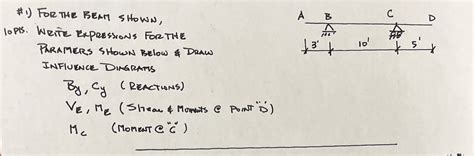 #1) FOR THE BEAM SHOWN,
10 PTS. WRITE EXPRESSIONS FOR THE
PARAMERS SHOWN BELOW & DRAW
INFLUENCE DIAGRAMS
By, Cy (REACTIONS)
VE, ME (SHEAR & MOMENTS @ POINT "D")
Mc (MOMENT @ "C")
A B C D
3' 10' 5'